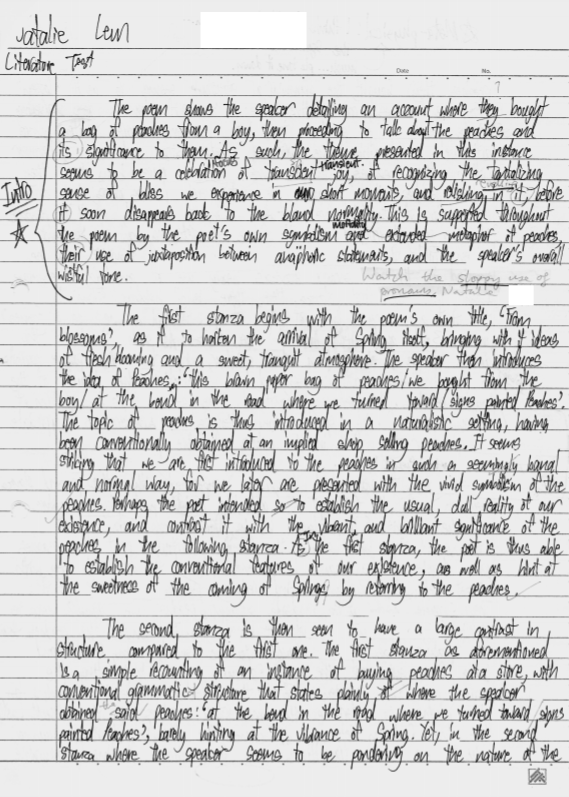 Natalie Lem
Literature Test
Date No.
The poem shows the speaker detailing an account where they bought
a bag of peaches from a boy, then proceeding to talk about the peaches and
its significance to them. As such, the theme presented in this instance
seems to be a celebration of transient joy, of recognizing the tantalizing
sense of bliss we experience in short moments, and relishing in it, before
Intro
it soon disappears back to the bland normality. This is supported throughout
the poem by the poet's own symbolism and extended metaphor of peaches,
their use of juxtaposition between anaphoric statements, and the speaker's overall
wistful tone.
Watch the sloppy use of
pronouns, Natalie
The first stanza begins with the poem's own title, "From
blossoms", as if to herald the arrival of Spring itself, bringing with it ideas
of fresh blooming and a sweet, tranquil atmosphere. The speaker then introduces
the idea of Peaches,: "this brown paper bag of peaches/ we bought from the
boy/ at the bend in the road where we turned toward/ signs painted Peaches".
The topic of peaches is thus introduced in a naturalistic setting, having
been conventionally obtained at an implied shop selling peaches. It seems
striking that we are first introduced to the peaches in such a seemingly banal
and normal way, for we later are presented with the vivid symbolism of the
peaches. Perhaps the poet intended so to establish the usual, dull reality of our
existence, and contrast it with the vibrant and brilliant significance of the
peaches in the following stanza. In the first stanza, the poet is thus able
to establish the conventional features of our existence, as well as hint at
the sweetness of the coming of Spring, by referring to the peaches.
The second stanza is then seen to have a large contrast in
structure compared to the first one. The first stanza as aforementioned
is a simple recounting of an instance of buying peaches at a store, with
conventional grammatic structure that states plainly of where the speaker
obtained said peaches: "at the bend in the road where we turned toward/ signs
painted Peaches", barely hinting at the vibrance of Spring. Yet, in the second
stanza where the speaker seems to be pondering on the nature of the